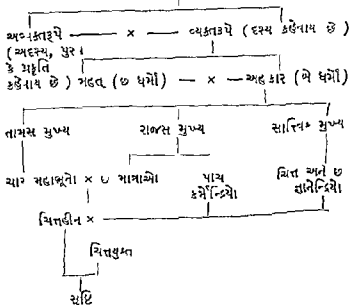 અવ્યક્તરૂપે — × — વ્યક્તરૂપે (દસ્ય કહેવાય છે)
(અદસ્ય, પુર
કે પ્રકૃતિ
કહેવાય છે) મહત્ (૭ ધર્મો) — × — અહંકાર (બે ધર્મો)
તામસ મુખ્ય રાજસ મુખ્ય સાત્ત્વિક મુખ્ય
ચાર મહાભૂતો × ૫ માત્રાઓ પાચ કર્મેન્દ્રિયો ચિત્ત અને ૭ જ્ઞાનેન્દ્રિયો
ચિત્તહીન ×
ચિત્તયુક્ત
સૃષ્ટિ